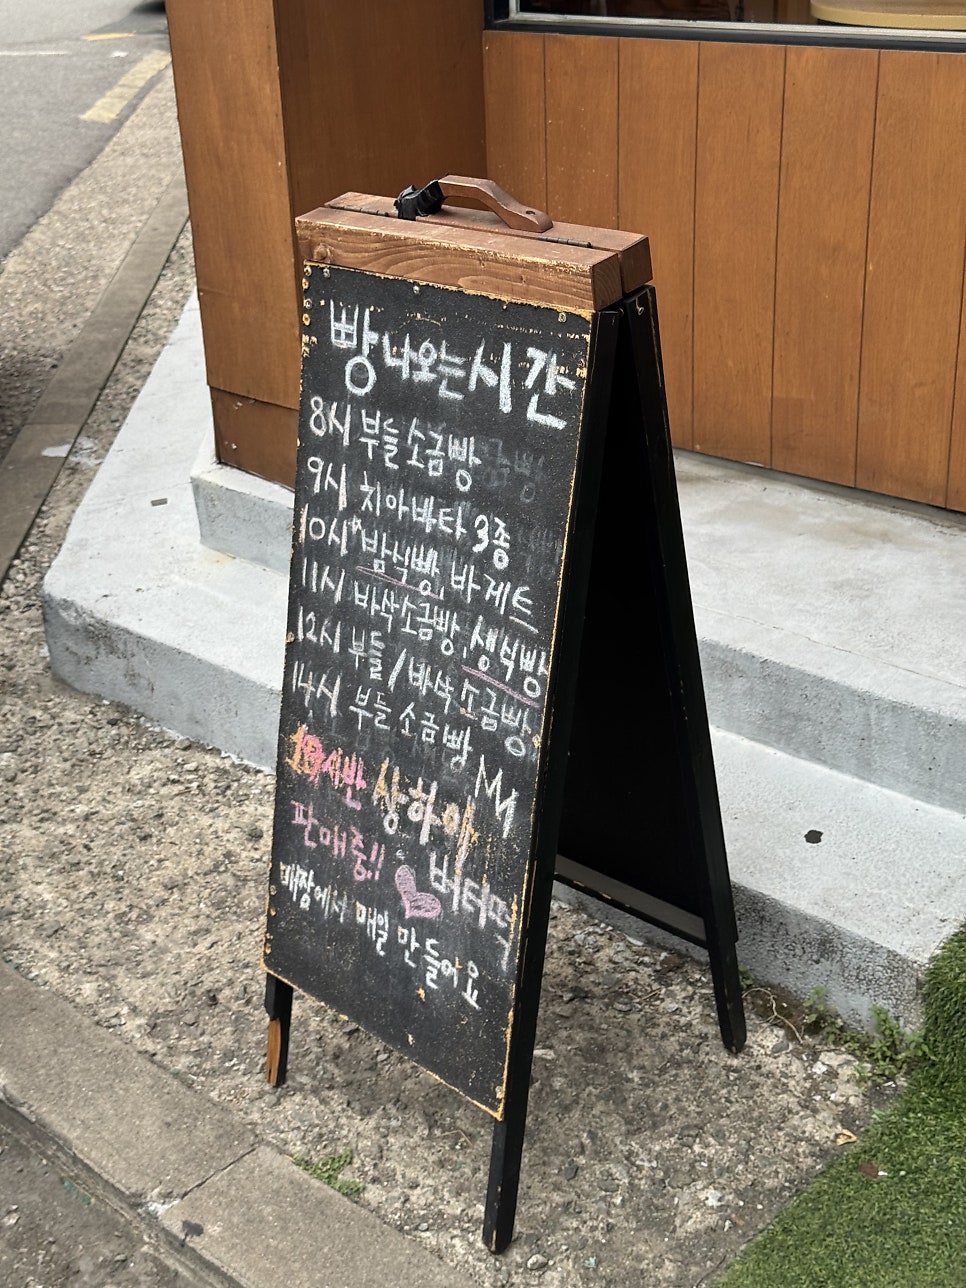 빵 나오는 시간
8시 부들 소금빵
9시 치아바타 3종
10시 밤식빵, 바게트
11시 바삭소금빵, 생식빵
12시 부들/바삭 소금빵
14시 부들 소금빵
시반 상하이
버터떡
판매중!!
매장에서 매일 만들어요